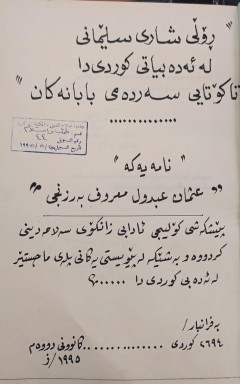 " ڕۆڵی شاری سلێمانی
لە ئەدەبیاتی کوردی دا
تاکۆتایی سەردەمی بابانەکان "
" نامەیەکە "
" عثمان عبدول معروف بەرزنجی "
پێشکەشی کۆلیجی ئادابی زانکۆی سەلاحەدینی
کردووە و بەشێکە لە پێویستی یەکانی پلەی ماجستێر
لە ئەدەبی کوردی دا ......
بەفرانبار/
٢٦٩٤ کوردی .............. کانوونی دووەم
١٩٩٥/ز